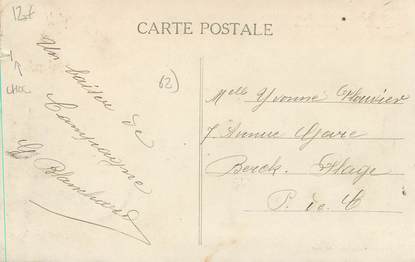 12+
CARTE POSTALE
62)
Un baiser de
Campagne
G Blanchard
Melle Yvonne
7 Avenue Gare
Berck. Plage
P. de C